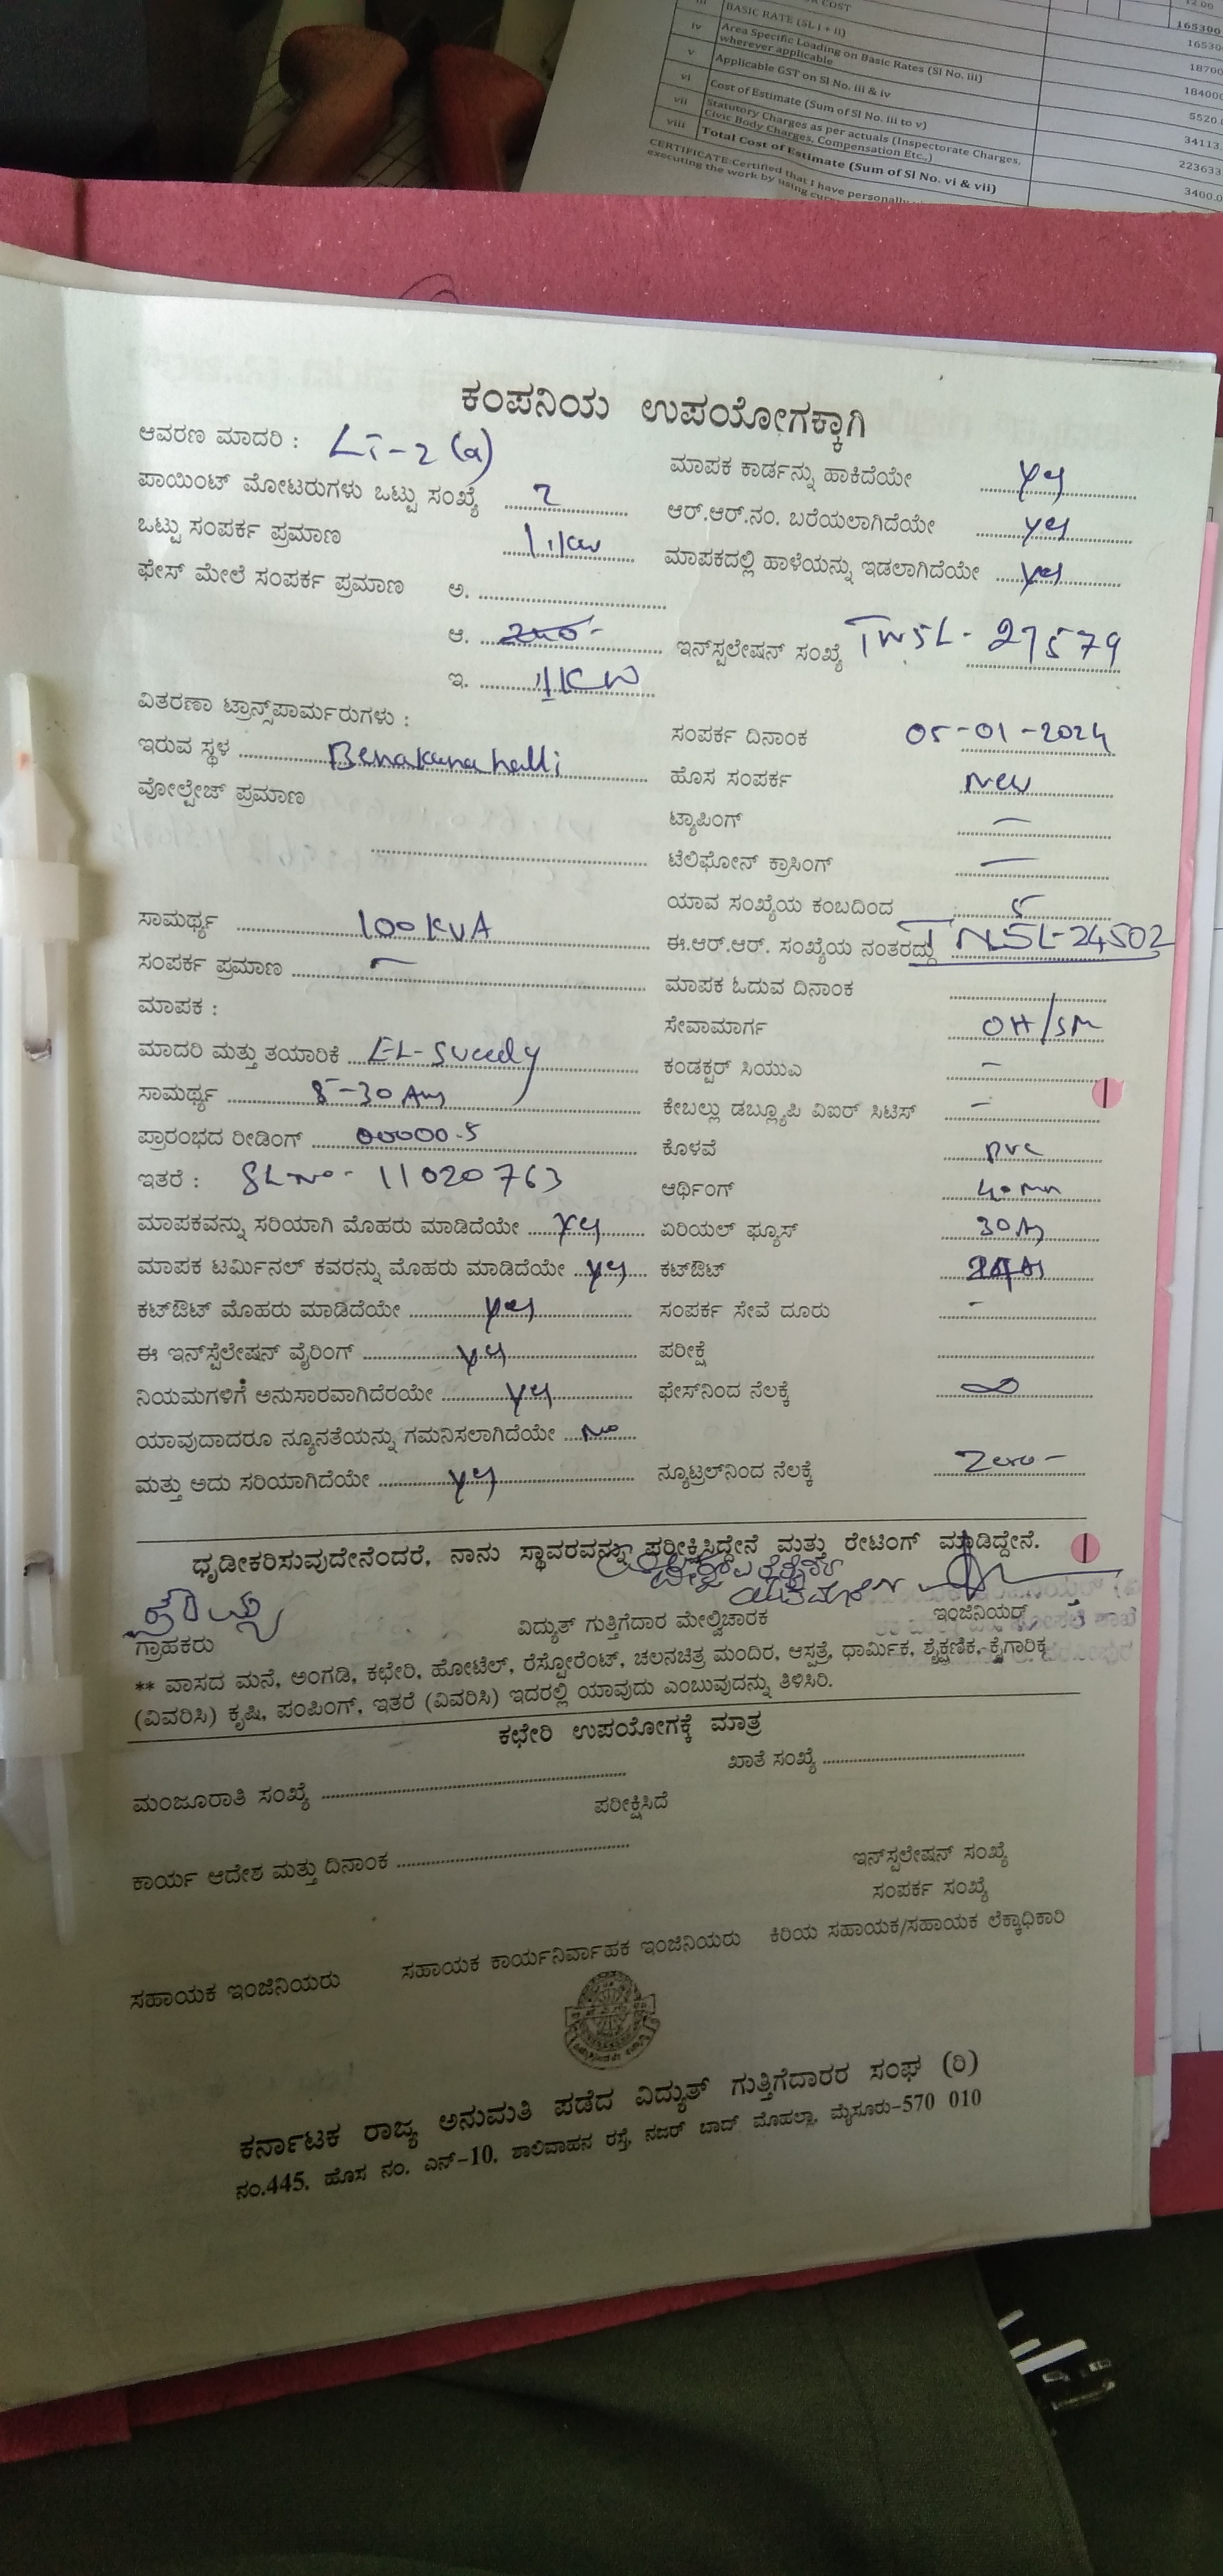 BASIC RATE (SL i + ii)
iv Area Specific Loading on Basic Rates (Sl No. iii) wherever applicable
v Applicable GST on Sl No. iii & iv
vi Cost of Estimate (Sum of Sl No. iii to v)
vii Statutory Charges as per actuals (Inspectorate Charges, Civic Body Charges, Compensation Etc.,)
viii Total Cost of Estimate (Sum of Sl No. vi & vii)
CERTIFICATE:Certified that I have personally
executing the work by using
ಕಂಪನಿಯ ಉಪಯೋಗಕ್ಕಾಗಿ
ಆವರಣ ಮಾದರಿ : LT-2 (a)
ಮಾಪಕ ಕಾರ್ಡನ್ನು ಹಾಕಿದೆಯೇ yes
ಪಾಯಿಂಟ್ ಮೋಟರುಗಳು ಒಟ್ಟು ಸಂಖ್ಯೆ 2
ಆರ್.ಆರ್.ನಂ. ಬರೆಯಲಾಗಿದೆಯೇ yes
ಒಟ್ಟು ಸಂಪರ್ಕ ಪ್ರಮಾಣ
ಮಾಪಕದಲ್ಲಿ ಹಾಳೆಯನ್ನು ಇಡಲಾಗಿದೆಯೇ yes
ಫೇಸ್ ಮೇಲೆ ಸಂಪರ್ಕ ಪ್ರಮಾಣ ಅ.
ಆ.
ಇನ್‌ಸ್ಟಲೇಷನ್ ಸಂಖ್ಯೆ TNSL- 27579
ಇ. 1KW
ವಿತರಣಾ ಟ್ರಾನ್ಸ್‌ಪಾರ್ಮರುಗಳು :
ಸಂಪರ್ಕ ದಿನಾಂಕ 05-01-2024
ಇರುವ ಸ್ಥಳ Benakanahalli
ಹೊಸ ಸಂಪರ್ಕ New
ವೋಲ್ಟೇಜ್ ಪ್ರಮಾಣ
ಟ್ಯಾಪಿಂಗ್ –
ಟೆಲಿಫೋನ್ ಕ್ರಾಸಿಂಗ್ –
ಯಾವ ಸಂಖ್ಯೆಯ ಕಂಬದಿಂದ 5
ಸಾಮರ್ಥ್ಯ 100 KVA
ಈ.ಆರ್.ಆರ್. ಸಂಖ್ಯೆಯ ನಂತರದ್ದು TNSL-24502
ಸಂಪರ್ಕ ಪ್ರಮಾಣ –
ಮಾಪಕ ಓದುವ ದಿನಾಂಕ
ಮಾಪಕ :
ಸೇವಾಮಾರ್ಗ OH/SM
ಮಾದರಿ ಮತ್ತು ತಯಾರಿಕೆ
ಕಂಡಕ್ಟರ್ ಸಿಯುಎ –
ಸಾಮರ್ಥ್ಯ 5-30 Am
ಕೇಬಲ್ಲು ಡಬ್ಲ್ಯೂಪಿ ವಿಐರ್ ಸಿಟಿಸ್ –
ಪ್ರಾರಂಭದ ರೀಡಿಂಗ್ 00000.5
ಕೊಳವೆ PVC
ಇತರೆ : SL no- 11020763
ಆರ್ಥಿಂಗ್
ಮಾಪಕವನ್ನು ಸರಿಯಾಗಿ ಮೊಹರು ಮಾಡಿದೆಯೇ yes
ಏರಿಯಲ್ ಫ್ಯೂಸ್ 30A
ಮಾಪಕ ಟರ್ಮಿನಲ್ ಕವರನ್ನು ಮೊಹರು ಮಾಡಿದೆಯೇ yes
ಕಟ್‌ಔಟ್
ಕಟ್‌ಔಟ್ ಮೊಹರು ಮಾಡಿದೆಯೇ yes
ಸಂಪರ್ಕ ಸೇವೆ ದೂರು -
ಈ ಇನ್‌ಸ್ಟಲೇಷನ್ ವೈರಿಂಗ್ yes
ಪರೀಕ್ಷೆ
ನಿಯಮಗಳಿಗೆ ಅನುಸಾರವಾಗಿದೆರಯೇ yes
ಫೇಸ್‌ನಿಂದ ನೆಲಕ್ಕೆ ∞
ಯಾವುದಾದರೂ ನ್ಯೂನತೆಯನ್ನು ಗಮನಿಸಲಾಗಿದೆಯೇ No
ಮತ್ತು ಅದು ಸರಿಯಾಗಿದೆಯೇ yes
ನ್ಯೂಟ್ರಲ್‌ನಿಂದ ನೆಲಕ್ಕೆ Zero-
ಧೃಡೀಕರಿಸುವುದೇನೆಂದರೆ, ನಾನು ಸ್ಥಾವರವನ್ನು ಪರೀಕ್ಷಿಸಿದ್ದೇನೆ ಮತ್ತು ರೇಟಿಂಗ್ ಮಾಡಿದ್ದೇನೆ.
ಗ್ರಾಹಕರು ವಿದ್ಯುತ್ ಗುತ್ತಿಗೆದಾರ ಮೇಲ್ವಿಚಾರಕ ಇಂಜಿನಿಯರ್
** ವಾಸದ ಮನೆ, ಅಂಗಡಿ, ಕಛೇರಿ, ಹೋಟೆಲ್, ರೆಸ್ಟೋರೆಂಟ್, ಚಲನಚಿತ್ರ ಮಂದಿರ, ಆಸ್ಪತ್ರೆ, ಧಾರ್ಮಿಕ, ಶೈಕ್ಷಣಿಕ, ಕೈಗಾರಿಕ
(ವಿವರಿಸಿ) ಕೃಷಿ, ಪಂಪಿಂಗ್, ಇತರೆ (ವಿವರಿಸಿ) ಇದರಲ್ಲಿ ಯಾವುದು ಎಂಬುವುದನ್ನು ತಿಳಿಸಿರಿ.
ಕಛೇರಿ ಉಪಯೋಗಕ್ಕೆ ಮಾತ್ರ
ಮಂಜೂರಾತಿ ಸಂಖ್ಯೆ
ಖಾತೆ ಸಂಖ್ಯೆ
ಪರೀಕ್ಷಿಸಿದೆ
ಕಾರ್ಯ ಆದೇಶ ಮತ್ತು ದಿನಾಂಕ
ಇನ್‌ಸ್ಟಲೇಷನ್ ಸಂಖ್ಯೆ
ಸಂಪರ್ಕ ಸಂಖ್ಯೆ
ಸಹಾಯಕ ಇಂಜಿನಿಯರು ಸಹಾಯಕ ಕಾರ್ಯನಿರ್ವಾಹಕ ಇಂಜಿನಿಯರು ಕಿರಿಯ ಸಹಾಯಕ/ಸಹಾಯಕ ಲೆಕ್ಕಾಧಿಕಾರಿ
ಕರ್ನಾಟಕ ರಾಜ್ಯ ಅನುಮತಿ ಪಡೆದ ವಿದ್ಯುತ್ ಗುತ್ತಿಗೆದಾರರ ಸಂಘ (ರಿ)
ನಂ.445, ಹೊಸ ನಂ. ಎನ್-10, ಶಾಲಿವಾಹನ ರಸ್ತೆ, ನಜರ್ ಬಾದ್ ಮೊಹಲ್ಲಾ, ಮೈಸೂರು-570 010